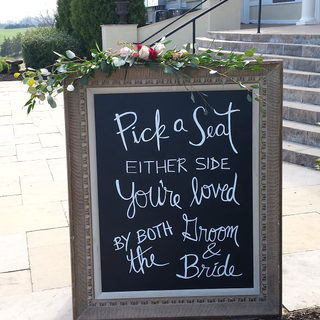 Pick a Seat
EITHER SIDE
You're loved
BY BOTH Groom
the &
Bride